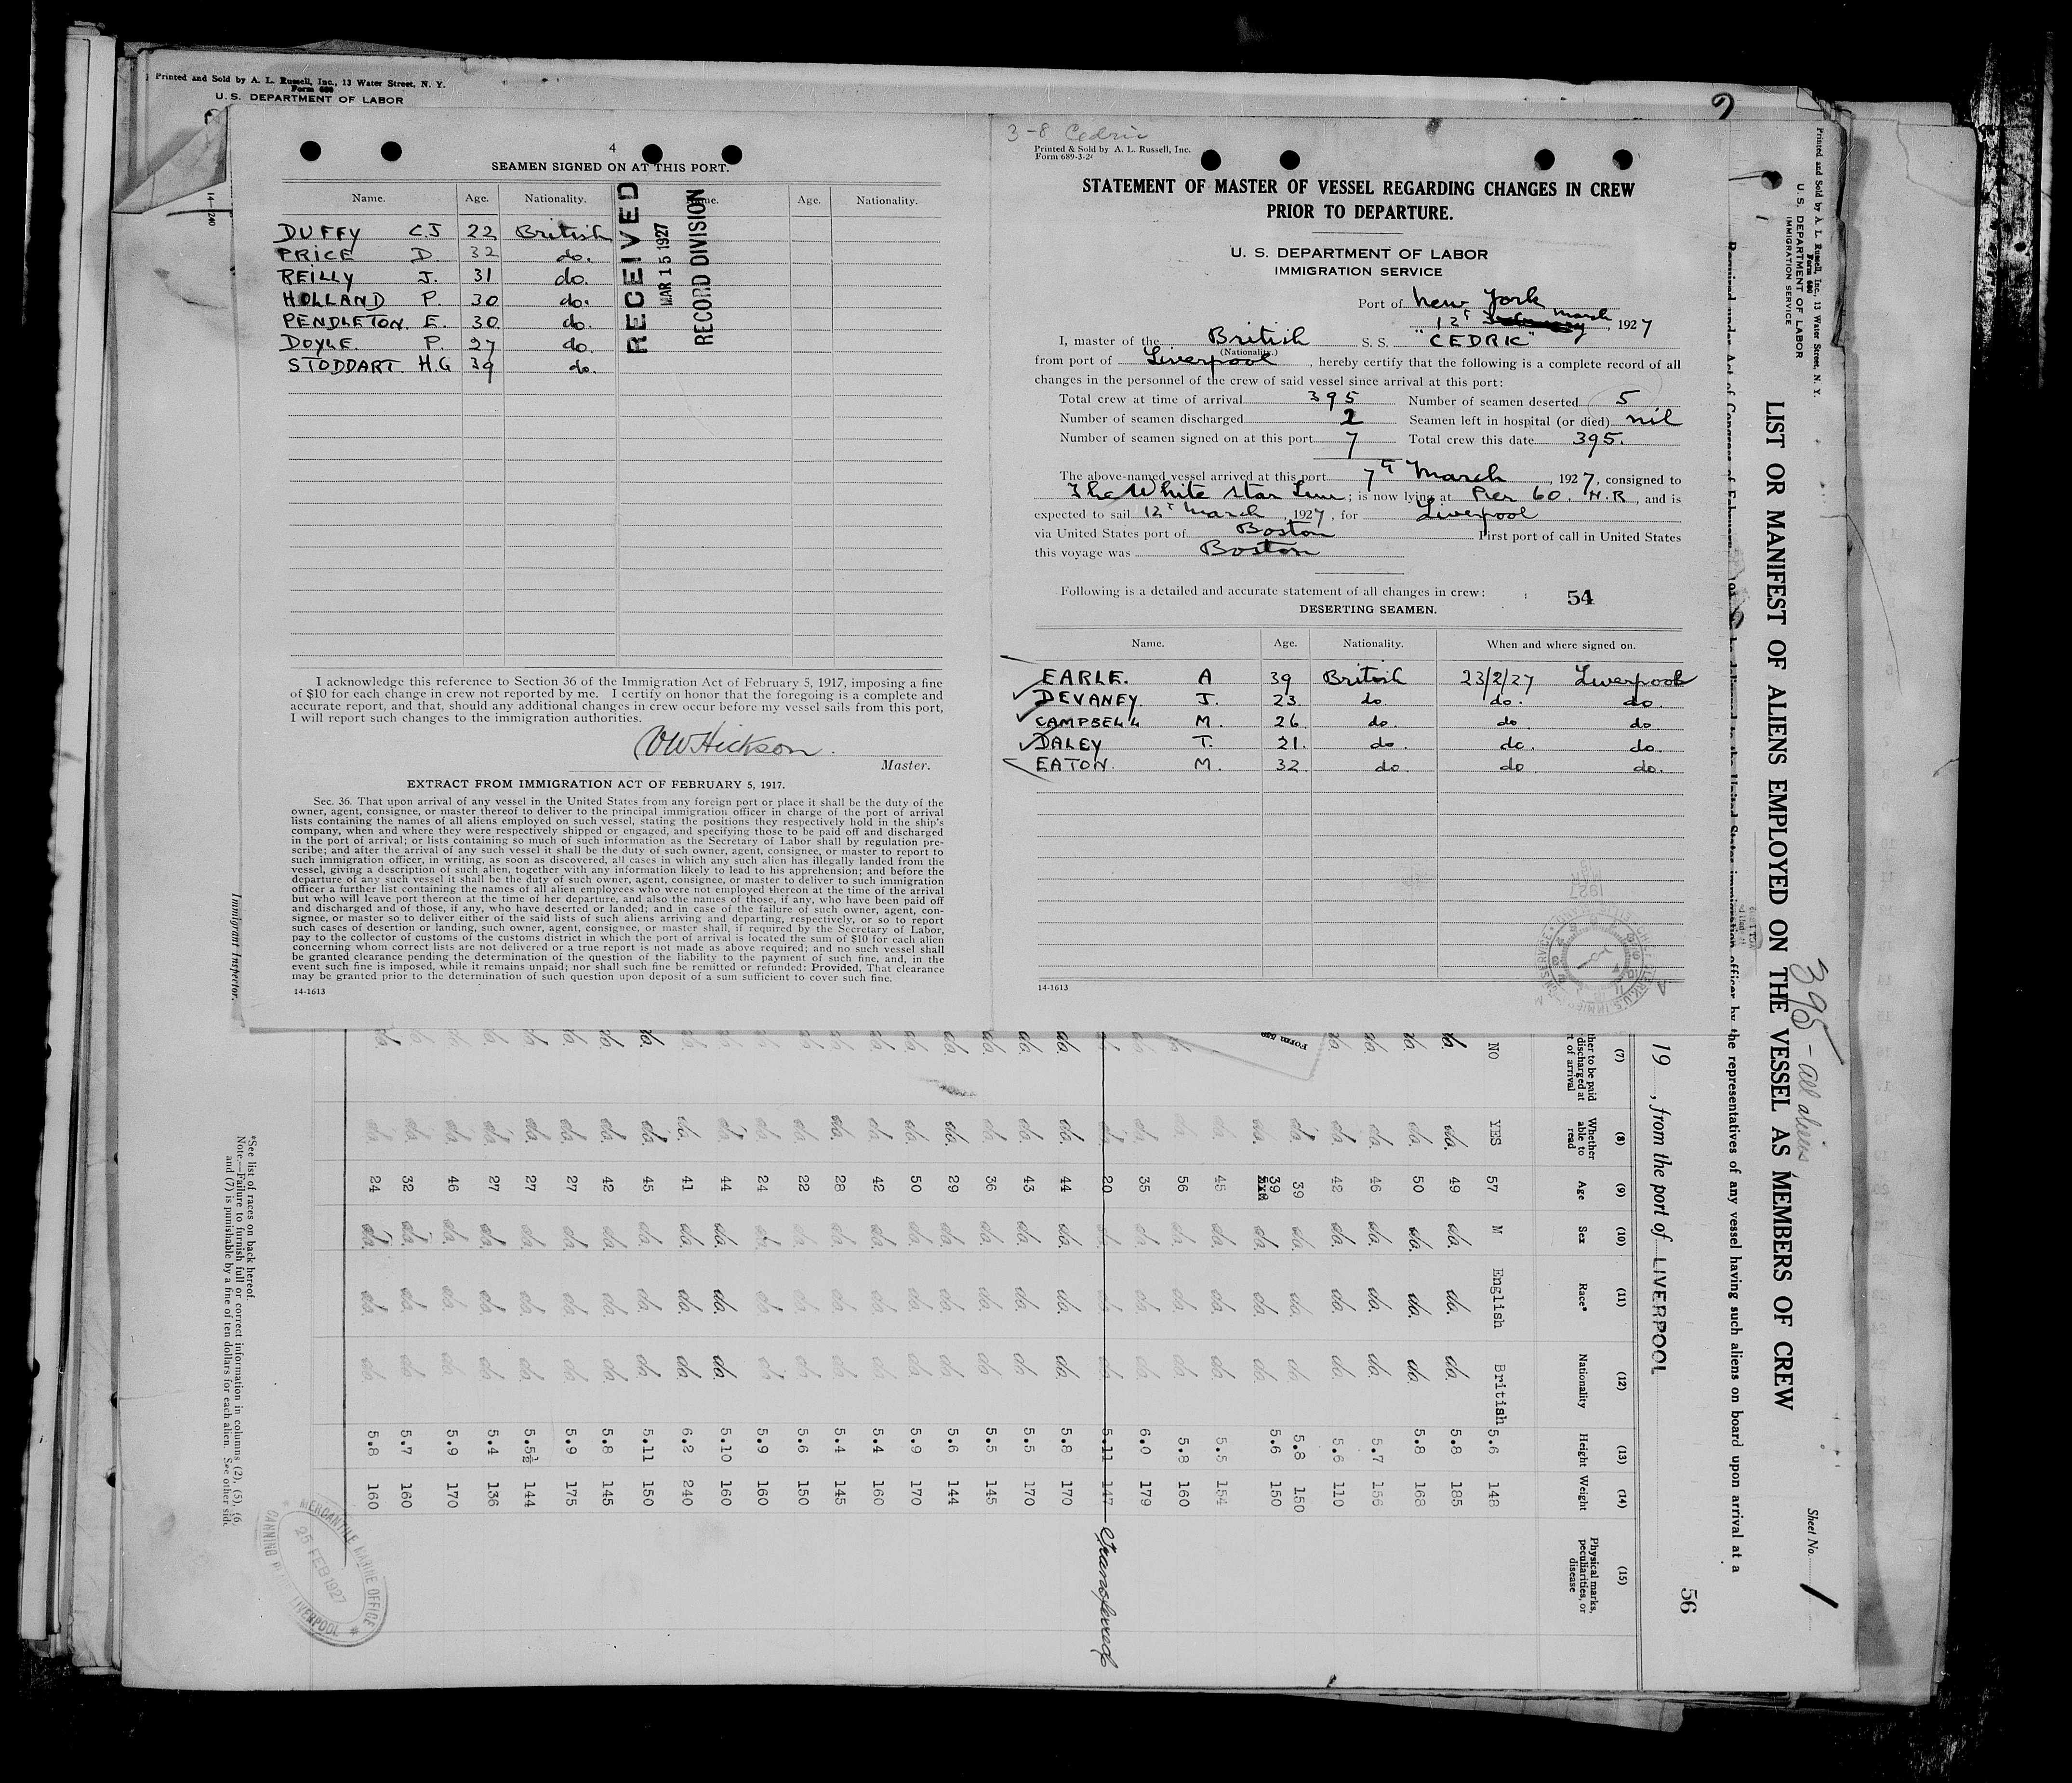 Printed and Sold by A. L. Russell, Inc., 13 Water Street, N. Y.
Form 680
U. S. DEPARTMENT OF LABOR
14—1240
Immigrant Inspector.
4
SEAMEN SIGNED ON AT THIS PORT.
Name. Age. Nationality. Name. Age. Nationality.
DUFFY C.J 22 British
PRICE D. 32 do.
REILLY J. 31 do.
HOLLAND P. 30 do.
PENDLETON. E. 30 do.
DOYLE. P. 27 do.
STODDART. H.G 39 do.
RECEIVED
MAR 15 1927
RECORD DIVISION
I acknowledge this reference to Section 36 of the Immigration Act of February 5, 1917, imposing a fine
of $10 for each change in crew not reported by me. I certify on honor that the foregoing is a complete and
accurate report, and that, should any additional changes in crew occur before my vessel sails from this port,
I will report such changes to the immigration authorities.
VW Hickson.
Master.
EXTRACT FROM IMMIGRATION ACT OF FEBRUARY 5, 1917.
Sec. 36. That upon arrival of any vessel in the United States from any foreign port or place it shall be the duty of the
owner, agent, consignee, or master thereof to deliver to the principal immigration officer in charge of the port of arrival
lists containing the names of all aliens employed on such vessel, stating the positions they respectively hold in the ship's
company, when and where they were respectively shipped or engaged, and specifying those to be paid off and discharged
in the port of arrival; or lists containing so much of such information as the Secretary of Labor shall by regulation pre-
scribe; and after the arrival of any such vessel it shall be the duty of such owner, agent, consignee, or master to report to
such immigration officer, in writing, as soon as discovered, all cases in which any such alien has illegally landed from the
vessel, giving a description of such alien, together with any information likely to lead to his apprehension; and before the
departure of any such vessel it shall be the duty of such owner, agent, consignee, or master to deliver to such immigration
officer a further list containing the names of all alien employees who were not employed thereon at the time of the arrival
but who will leave port thereon at the time of her departure, and also the names of those, if any, who have been paid off
and discharged and of those, if any, who have deserted or landed; and in case of the failure of such owner, agent, con-
signee, or master so to deliver either of the said lists of such aliens arriving and departing, respectively, or so to report
such cases of desertion or landing, such owner, agent, consignee, or master shall, if required by the Secretary of Labor,
pay to the collector of customs of the customs district in which the port of arrival is located the sum of $10 for each alien
concerning whom correct lists are not delivered or a true report is not made as above required; and no such vessel shall
be granted clearance pending the determination of the question of the liability to the payment of such fine, and, in the
event such fine is imposed, while it remains unpaid; nor shall such fine be remitted or refunded: Provided, That clearance
may be granted prior to the determination of such question upon deposit of a sum sufficient to cover such fine.
14-1613
3-8 Cedric
Printed & Sold by A. L. Russell, Inc.
Form 689-3-26
STATEMENT OF MASTER OF VESSEL REGARDING CHANGES IN CREW
PRIOR TO DEPARTURE.
U. S. DEPARTMENT OF LABOR
IMMIGRATION SERVICE
Port of New York
12th March, 1927
I, master of the British S. S. "CEDRIC"
(Nationality.)
from port of Liverpool, hereby certify that the following is a complete record of all
changes in the personnel of the crew of said vessel since arrival at this port:
Total crew at time of arrival 395 Number of seamen deserted 5
Number of seamen discharged 2 Seamen left in hospital (or died) nil
Number of seamen signed on at this port 7 Total crew this date 395.
The above-named vessel arrived at this port 7th March, 1927, consigned to
The White Star Line; is now lying at Pier 60. N.R, and is
expected to sail 12th March, 1927, for Liverpool
via United States port of Boston First port of call in United States
this voyage was Boston
Following is a detailed and accurate statement of all changes in crew:
54
DESERTING SEAMEN.
Name. Age. Nationality. When and where signed on.
EARLE. A 39 British 23/2/27 Liverpool
DEVANEY. J. 23 do. do. do.
CAMPBELL M. 26 do do do
DALEY T. 21. do do. do.
EATON. M. 32 do do do.
14-1613
Printed and Sold by A. L. Russell, Inc., 13 Water Street, N. Y.
Form 680
U. S. DEPARTMENT OF LABOR
IMMIGRATION SERVICE
LIST OR MANIFEST OF ALIENS EMPLOYED ON THE VESSEL AS MEMBERS OF CREW
395 - all aliens
Sheet No. 1
the representatives of any vessel having such aliens on board upon arrival at a
19 , from the port of LIVERPOOL
56
(7) (8) (9) (10) (11) (12) (13) (14) (15)
ther to be paid discharged at t of arrival
Whether able to read
Age
Sex
Race*
Nationality
Height
Weight
Physical marks, peculiarities, or disease
NO YES 57 M English British 5.6 148
do. do. 49 do. do. do. 5.8 185
do. do. 50 do. do. do. 5.8 168
do. do. 46 do. do. do. 5.7 156
do. do. 42 do. do. do. 5.6 110
do. 39 do. do. do. 5.8 150
do. 39 do. do. do. 5.6 150
do. 45 do. do. do. 5.5 154
do. do. 56 do. do. do. 5.8 160
do. do. 35 do. do. do. 6.0 179
do. 20 do. do. do. 5.11 147 Transferred
do. do. 44 do. do. do. 5.8 170
do. do. 43 do. do. do. 5.5 170
do. do. 36 do. do. do. 5.5 145
do. do. 29 do. do. do. 5.6 144
do. do. 50 do. do. do. 5.9 170
do. do. 42 do. do. do. 5.4 160
do. do. 28 do. do. do. 5.4 145
do. do. 22 do. do. do. 5.6 150
do. do. 24 do. do. do. 5.9 160
do. do. 44 do. do. do. 5.10 160
do. do. 41 do. do. do. 6.2 240
do. do. 45 do. do. do. 5.11 150
do. do. 42 do. do. do. 5.8 145
do. do. 27 do. do. do. 5.9 175
do. do. 27 do. do. do. 5.5½ 144
do. do. 27 do. do. do. 5.4 136
do. do. 46 do. do. do. 5.9 170
do. do. 32 do. do. do. 5.7 160
do. do. 24 do. do. do. 5.8 160
*See list of races on back hereof.
Note.—Failure to furnish full or correct information in columns (2), (5), (6,
and (7) is punishable by a fine of ten dollars for each alien. See other side
MERCANTILE MARINE OFFICE
25 FEB 1927
CANNING PLACE LIVERPOOL